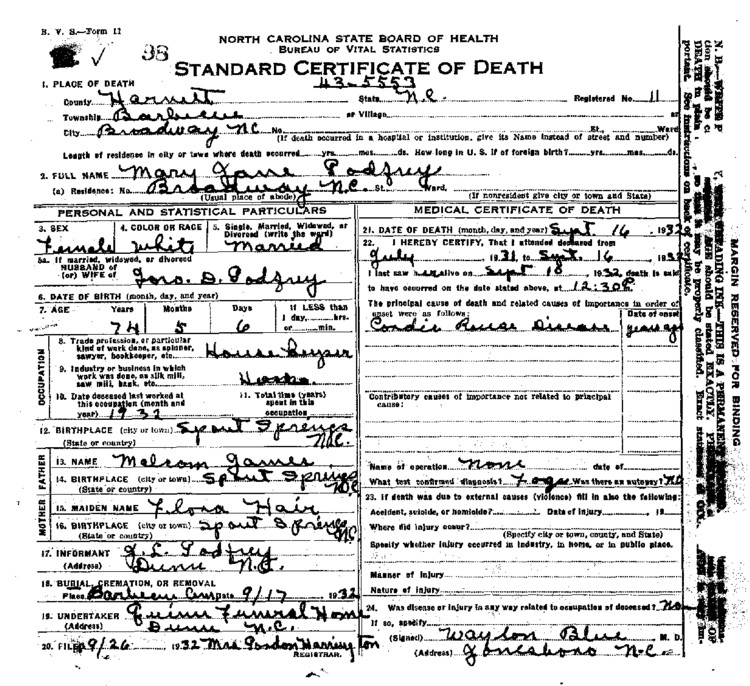 B. V. S.—Form 11
98
NORTH CAROLINA STATE BOARD OF HEALTH
BUREAU OF VITAL STATISTICS
STANDARD CERTIFICATE OF DEATH
43-5553
1. PLACE OF DEATH
County Harnett State N.C. Registered No. 11
Township Barbecue or Village or
City Broadway N.C. No. St., Ward
(If death occurred in a hospital or institution, give its Name instead of street and number)
Length of residence in city or town where death occurred yrs. mos. ds. How long in U. S. if of foreign birth? yrs. mos. ds.
2. FULL NAME Mary Jane Godfrey
(a) Residence: No. Broadway N.C. St. Ward.
(Usual place of abode) (If nonresident give city or town and State)
PERSONAL AND STATISTICAL PARTICULARS
3. SEX 4. COLOR OR RACE 5. Single, Married, Widowed, or Divorced (write the word)
Female White Married
5a. If married, widowed, or divorced
HUSBAND of
(or) WIFE of Geo. D. Godfrey
6. DATE OF BIRTH (month, day, and year)
7. AGE Years Months Days If LESS than
1 day, hrs.
74 5 6 or min.
OCCUPATION
8. Trade, profession, or particular
kind of work done, as spinner,
sawyer, bookkeeper, etc. House Keeper
9. Industry or business in which
work was done, as silk mill,
saw mill, bank, etc.
10. Date deceased last worked at 11. Total time (years)
this occupation (month and spent in this
year) 1932 occupation
12. BIRTHPLACE (city or town) Spout Springs
(State or country) N.C.
FATHER
13. NAME Malcom James
14. BIRTHPLACE (city or town) Spout Springs
(State or country) N.C.
MOTHER
15. MAIDEN NAME Flora Hair
16. BIRTHPLACE (city or town) Spout Springs
(State or country) N.C.
17. INFORMANT Godfrey
(Address) Dunn N.C.
18. BURIAL, CREMATION, OR REMOVAL
Place Barbecue Cem Date 9/17, 1932
19. UNDERTAKER Quinn Funeral Home
(Address) Dunn N.C.
20. FILED 9/26, 1932 Mrs Gordon Harrington
REGISTRAR.
MEDICAL CERTIFICATE OF DEATH
21. DATE OF DEATH (month, day, and year) Sept 16, 1932
22. I HEREBY CERTIFY, That I attended deceased from
July, 1931, to Sept. 16, 1932
I last saw her alive on Sept 18, 1932, death is said
to have occurred on the date stated above, at 12:30 P.
The principal cause of death and related causes of importance in order of
onset were as follows: Date of onset
Disease
Contributory causes of importance not related to principal
cause:
Name of operation None date of
What test confirmed diagnosis? Was there an autopsy? No
23. If death was due to external causes (violence) fill in also the following:
Accident, suicide, or homicide? Date of injury 19
Where did injury occur?
(Specify city or town, county, and State)
Specify whether injury occurred in industry, in home, or in public place.
Manner of injury
Nature of injury
24. Was disease or injury in any way related to occupation of deceased? No
If so, specify
(Signed) Waylon Blue M. D.
(Address) Jonesboro N.C.
MARGIN RESERVED FOR BINDING